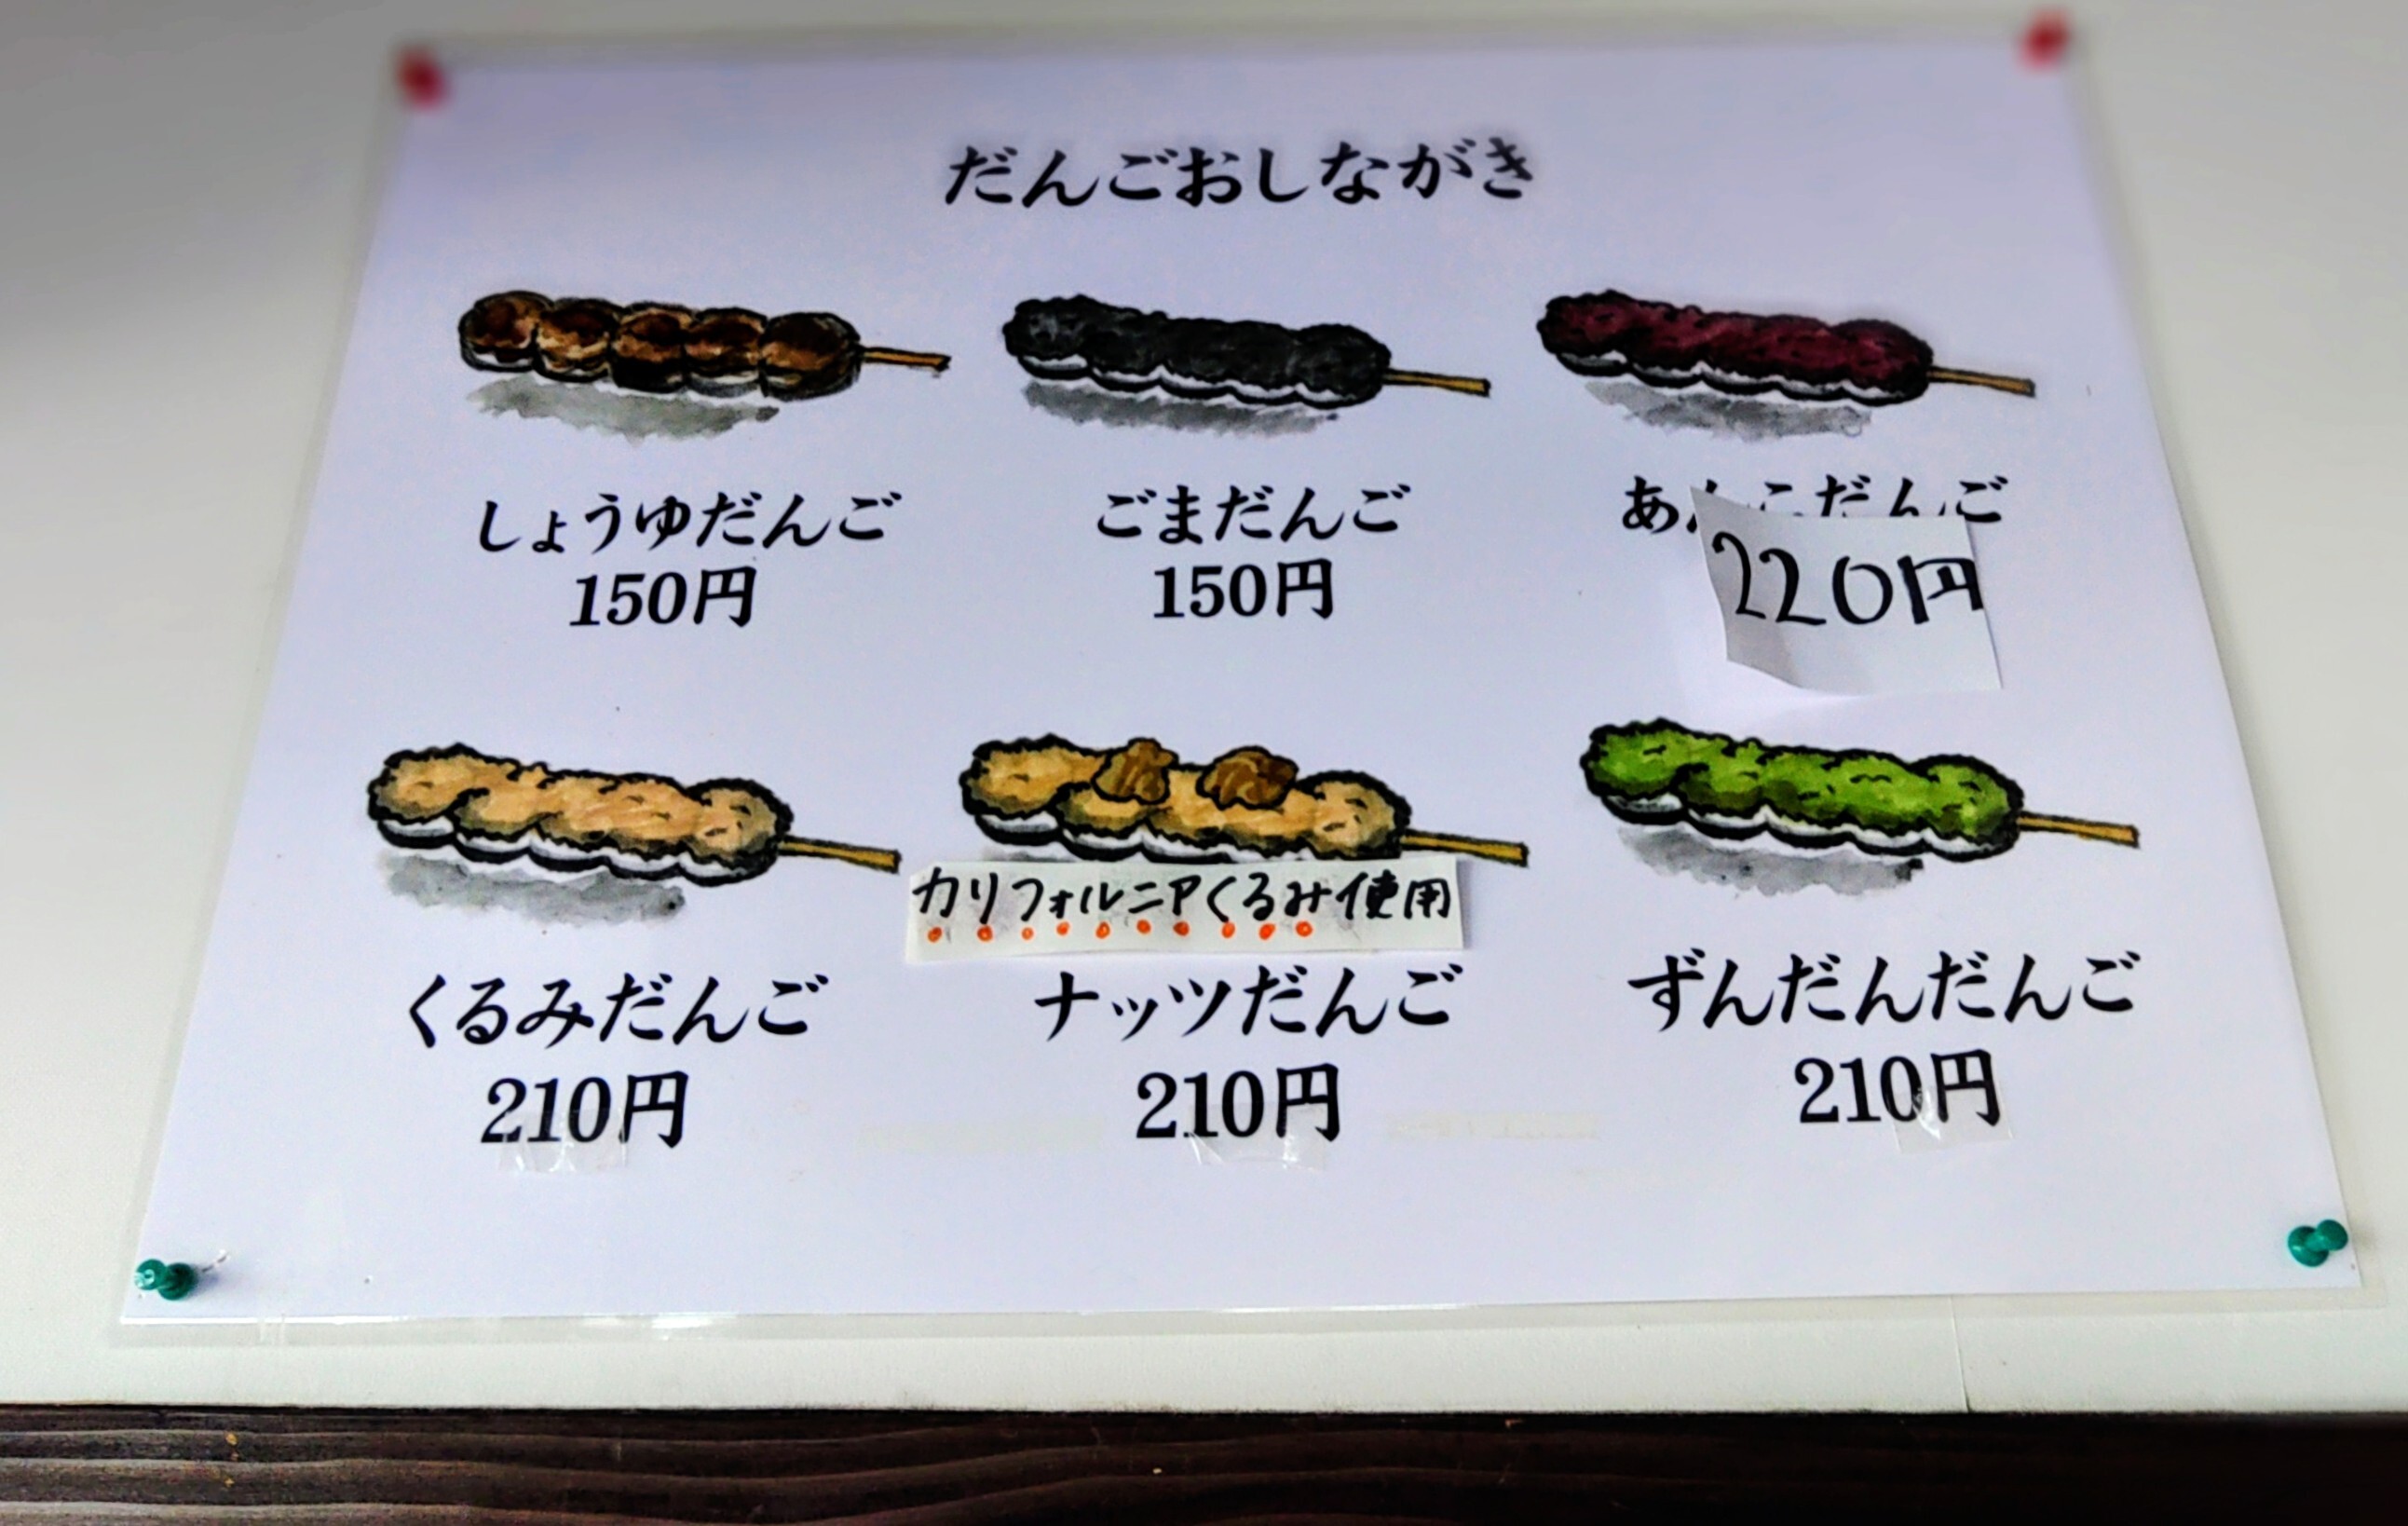 だんごおしながき
しょうゆだんご
150円
ごまだんご
150円
あんこだんご
220円
カリフォルニアくるみ使用
くるみだんご
210円
ナッツだんご
210円
ずんだんだんご
210円